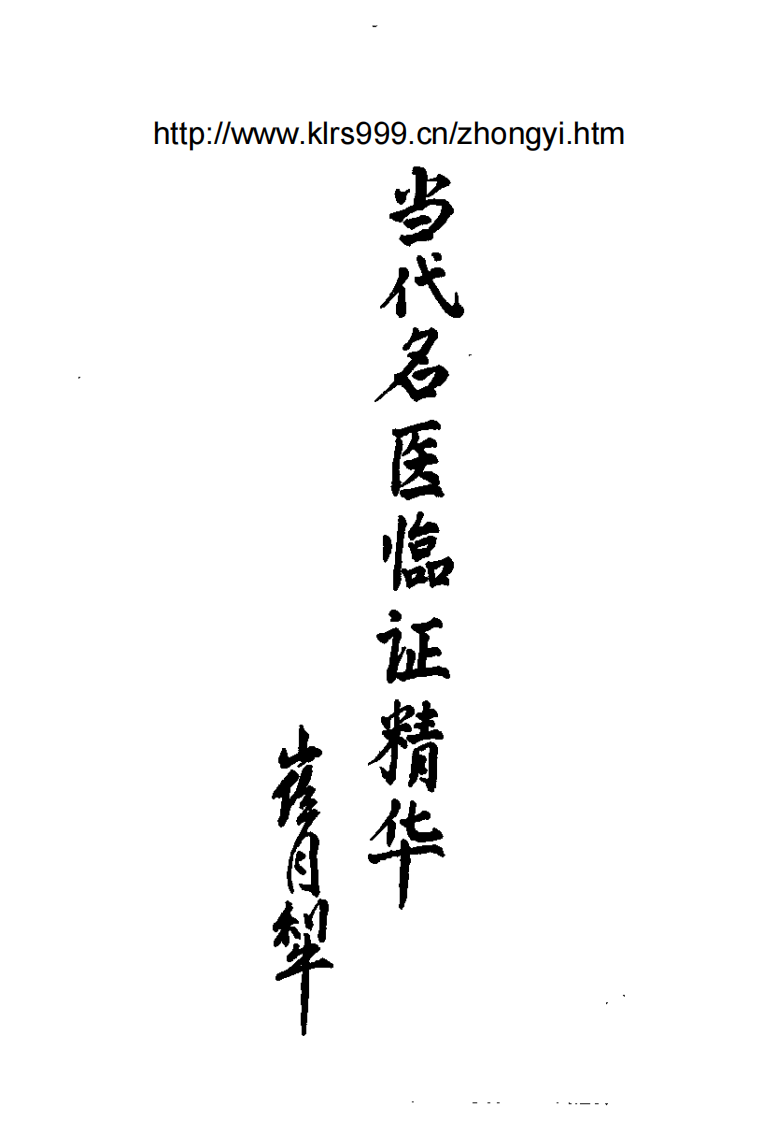 http://www.klrs999.cn/zhongyi.htm
当代名医临证精华
崔月犁